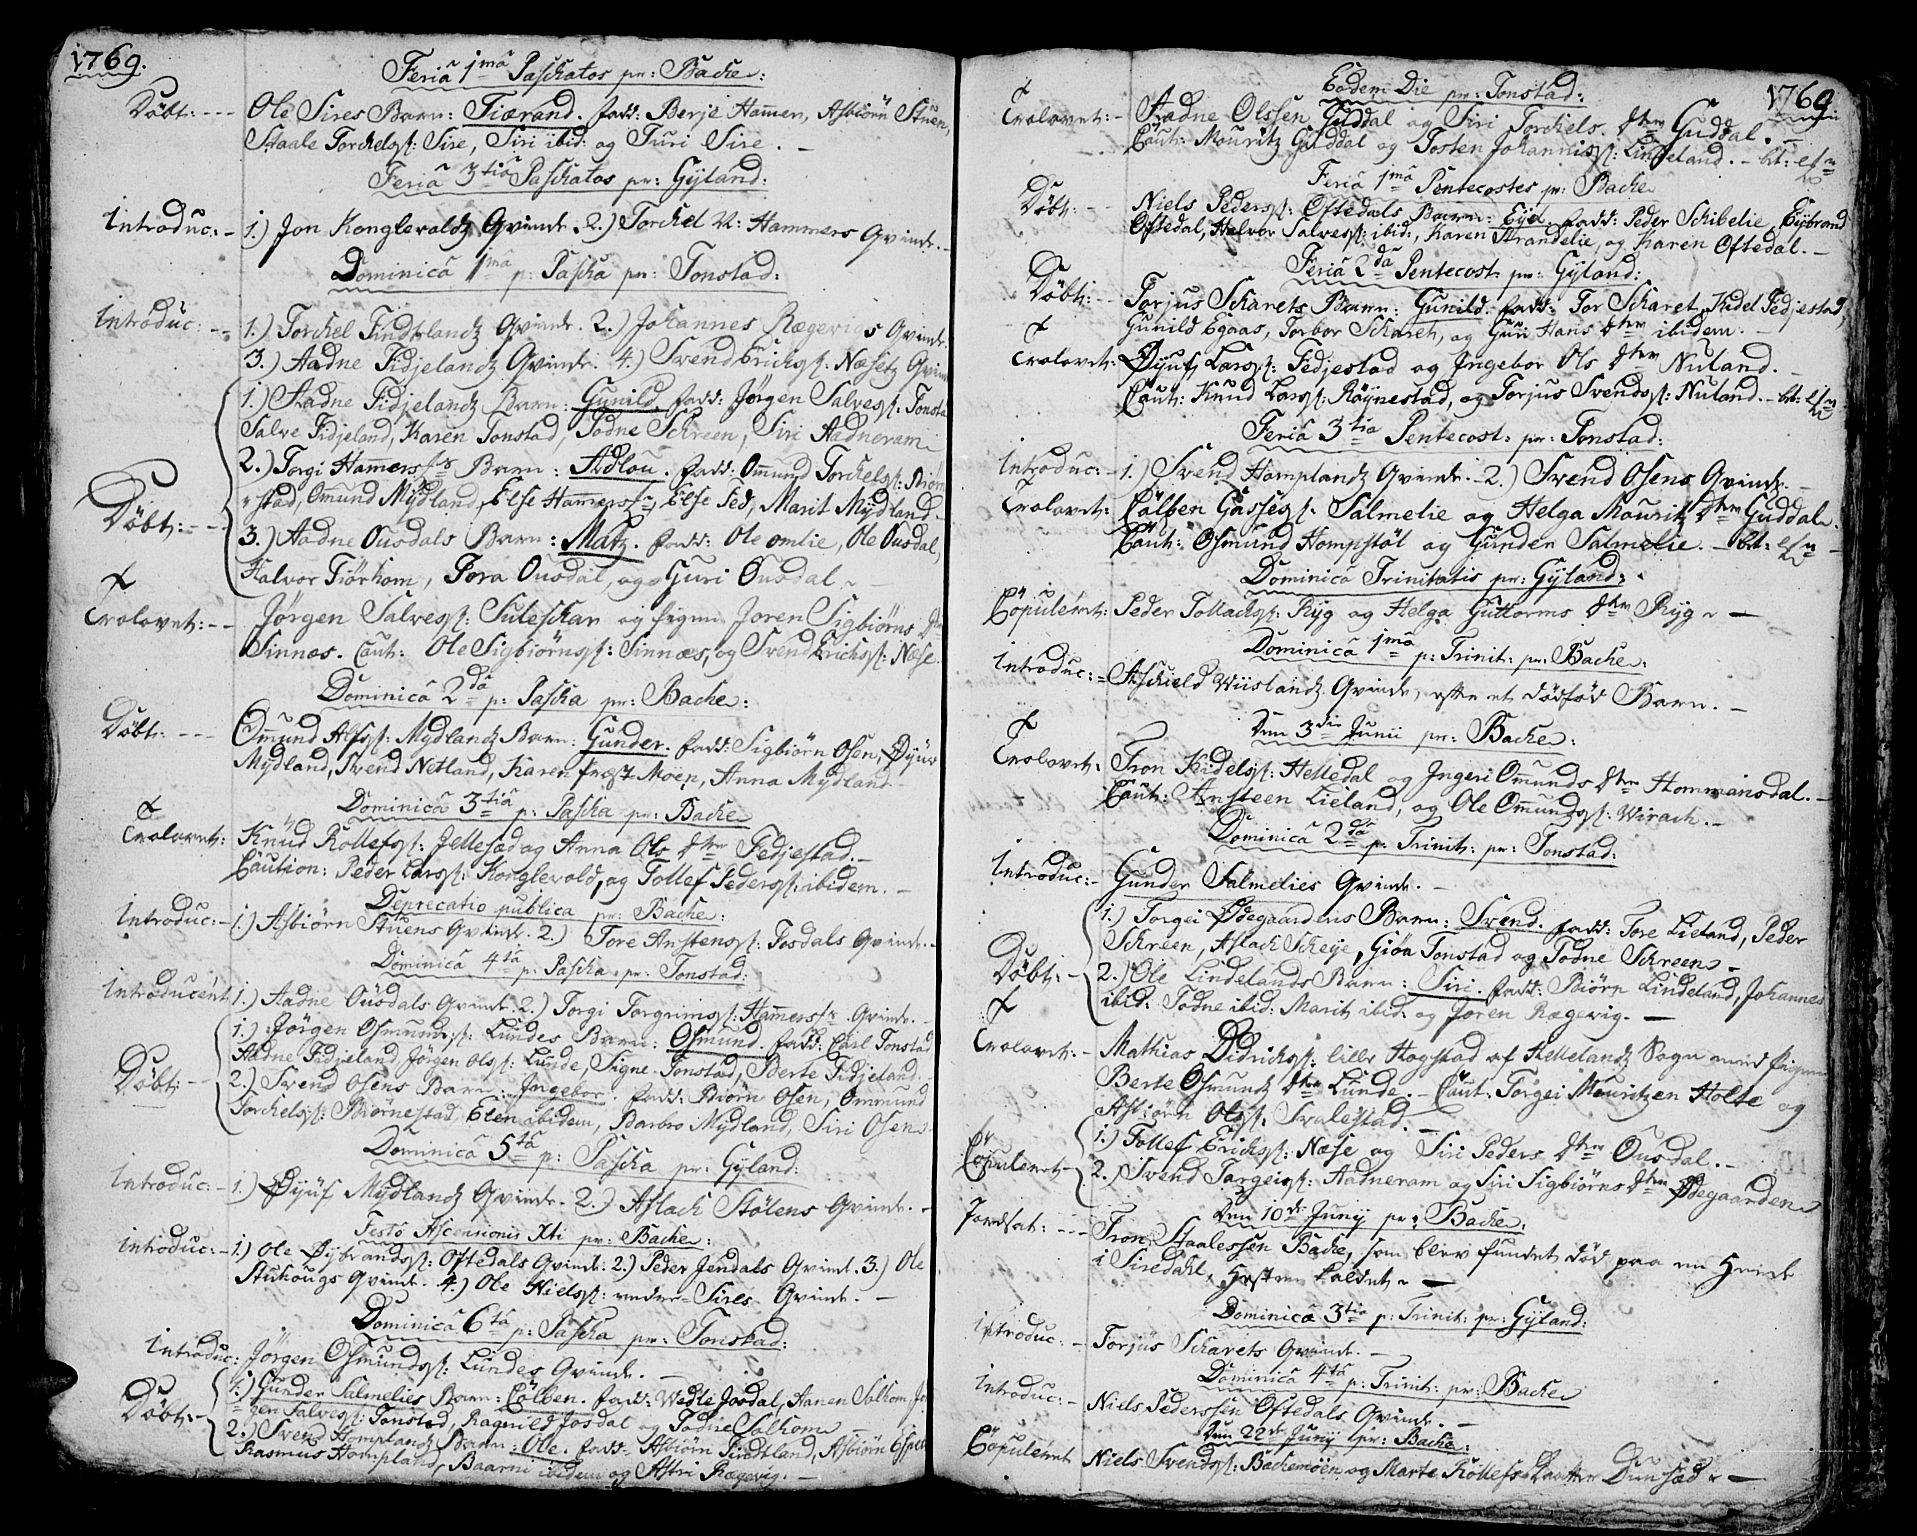 1769.
Feria 1ma Paschatos pr: Bache:
Døbt: --- Ole Sires Barn: Tiærand. fadd: Berje Hamer, Asbiørn Stuen,
Staale Torchels: Sire, Siri ibid: og Turi Sire. -
Feria 3tia Paschatos pr: Gyland:
Introduc: - 1.) Jon Konglevoldz Qvinde. 2.) Torchel N: Hammers Qvinde.
Dominica 1ma p: Pascha pr: Tonstad:
Introduc: -- 1.) Torchel Findtlandz Qvinde. 2.) Johannes Rægevigs Qvinde.
3.) Aadne Fidjelandz Qvinde. 4.) Svend Erichs: Næsetz Qvinde
1.) Aadne Fidjelandz Barn: Gunild. fadd: Jørgen Salves: Tonsta
Salve Fidjeland, Karen Tonstad, Todne Schreen, Siri Aadneram
2.) Torgi Hamers Barn: Adlou. fadd: Omund Torchels: Biørn
stad, Omund Mydland, Else Hamers, Else Fed, Marit Mydland.
Døbt: -- 3.) Aadne Ousdals Barn: Matz. fadd: Ole omlie, Ole Ousdal,
Halvor Tiørhom, Tora Ousdal, og Guri Ousdal -
Trolovet: -- Jørgen Salves: Suleskar og Joren Sigbiørns
Sinnes. Caut: Ole Sigbiørns: Sinnæs, og Svend Erichs: Næse.
Dominica 2da p: Pascha pr: Bache:
Døbt: --- Omund Alfs: Mydlandz Barn: Gunder. fadd: Sigbiørn Osen, Øyuv
Mydland, Svend Netland, Karen Moen, Anna Mydland
Dominica 3tia p: Pascha pr: Bache
Trolovet: Knud Rollefs: Jellesad og Anna Ols Dtter Fedjestad. -
Caution: Peder Lars: Konglevold, og Tollef Peders: ibidem. -
Deprecatio publica pr: Bache:
Introduc: - 1.) Asbiørn Stuens Qvinde. 2.) Tore Anstens: Josdals Qvinde. -
Dominica 4ta p: Pascha pr: Tonstad:
Introducert 1.) Aadne Ousdals Qvinde. 2.) Torgi Torgrims: Hamers Qvinde.
1.) Jørgen Osmunds: Lundes Barn: Osmund. fadd: Carl Tonstad
Aadne Fidjeland, Jørgen Ols: Lunde, Signe Tonstad, Berte Fidjeland.
Døbt: -- 2.) Svend Osens Barn: Ingebor. fadd: Biørn Osen, Ommund
Torchels: Biørnestad, Elen ibidem, Barbro Mydland, Siri Osens
Dominica 5ta p: Pascha pr: Gyland:
Introduc: - 1.) Øyuf Mydlandz Qvinde. 2.) Aslach Stølens Qvinde. -
Festo Ascensionis Xti pr: Bache:
Introduc: - 1.) Ole Øybrands: Oftedals Qvinde. 2.) Peder Jendals Qvinde. 3.) Ole
Qvinde. 4.) Ole Niels: nedre-Sires Qvinde. -
Dominica 6ta p: Pascha pr: Tonstad:
Introduc: Jørgen Osmunds: Lundes Qvinde. -
1.) Gunder Salmelies Barn: Cölben. fadd: Wedle Josdal, Hanen Salhom, Jø
Døbt: - gen Salves: Tonstad, Ragnild Josdal og Todne Salhom
2.) Svend Homplandz Barn: Ole. fadd: Asbiørn Findtland, Asbiørn Espe
Rasmus Hompland, Baarni ibidem og Astri Rægevig. -
1769.
Eodem Die pr: Tonstad:
Trolovet: - Aadne Olssen Guddal og Siri Torchels. Dtter Guddal.
Caut: Mouritz Guddal og Tosten Johannis: Lindeland. -
Feria 1ma Pentecostes pr: Bache
Døbt: -- Niels Peders: Oftedals Barn: Eya. fadd: Peder Schibelie, Eybrand
Oftedal, Halvor Salves: ibid:, Karen Strandelie, og Karen Oftedal. -
Feria 2da Pentecost: pr: Gyland:
Døbt: -- Torjus Scharets Barn: Gunild. fadd: Tor Scharet, Kidel Fedjestad,
Gunild Egaas, Torbor Scharet, og Guri Hans Dtter ibidem. -
Trolovet: Øyuf Lars: Fedjestad og Ingebor Ols Dtter Nuland. -
Caut: Knud Lars: Røynestad, og Torjus Svends: Nuland. -
Feria 3tia Pentecost: pr: Tonstad:
Introduc: - 1.) Svend Homplandz Qvinde. - 2.) Svend Osens Qvinde. -
Trolovet: Cölben Gasses: Salmelie og Helga Mouritz Dtter Guddal.
Caut: Osmund Hompstøl og Gunder Salmelie. -
Dominica Trinitatis pr: Gyland:
Copuleret: Peder Tollachs: Ryg og Helga Guttorms Dtter Ryg - -
Dominica 1ma p: Trinit: pr: Bache:
Introduc: - Aschield Wiislandz Qvinde, efter et dødfød Barn. -
Den 3die Junii pr: Bache:
Trolovet: Tron Kidels: Helledal og Ingeri Omunds Dtter Hommansdal. -
Caut: Ansteen Lieland, og Ole Omunds: Wirach. -
Dominica 2da p: Trinit: pr: Tonstad:
Introduc: - Gunder Salmelies Qvinde. -
1.) Torgei Ødegaardens Barn: Svend. fadd: Tore Lieland, Peder
Schreen, Aslach Scheye, Giøa Tonstad og Todne Schreens -
Døbt: - 2.) Ole Lindelands Barn: Siri. fadd: Biørn Lindeland, Johannes
ibid: Todne ibid: Marit ibid: og Joren Rægevig. -
Trolovet: - Mathias Didrichs: lille Hogstad af Hellelandz Sogn med Pigen
Berte Osmundz Dtter Lunde. - Caut: Torgei Mouritzen Holte og
Asbiørn Ols: Svalestad. -
Copuleret - 1.) Tollef Erichs: Næse og Siri Peders Dtter Ousdal. -
2.) Svend Torgeis: Aadneram og Siri Sigbiørns Dtter Ødegaarden
Den 10de Junij pr: Bache:
Jordsat: --- Tron Staalessen Bache, som blev fundet død paa en Heede
i Siredahl, kaldet - -
Dominica 3tia p: Trinit: pr: Gyland:
Introduc: - Torjus Scharets Qvinde. -
Dominica 4ta p: Trinit: pr: Bache
Introduc: - Niels Pederssen Oftedals Qvinde. -
Den 22de Junij pr: Bache:
Copuleret Niels Svends: Bachemoen og Marte Rollefs Daatter Dunsæd - -